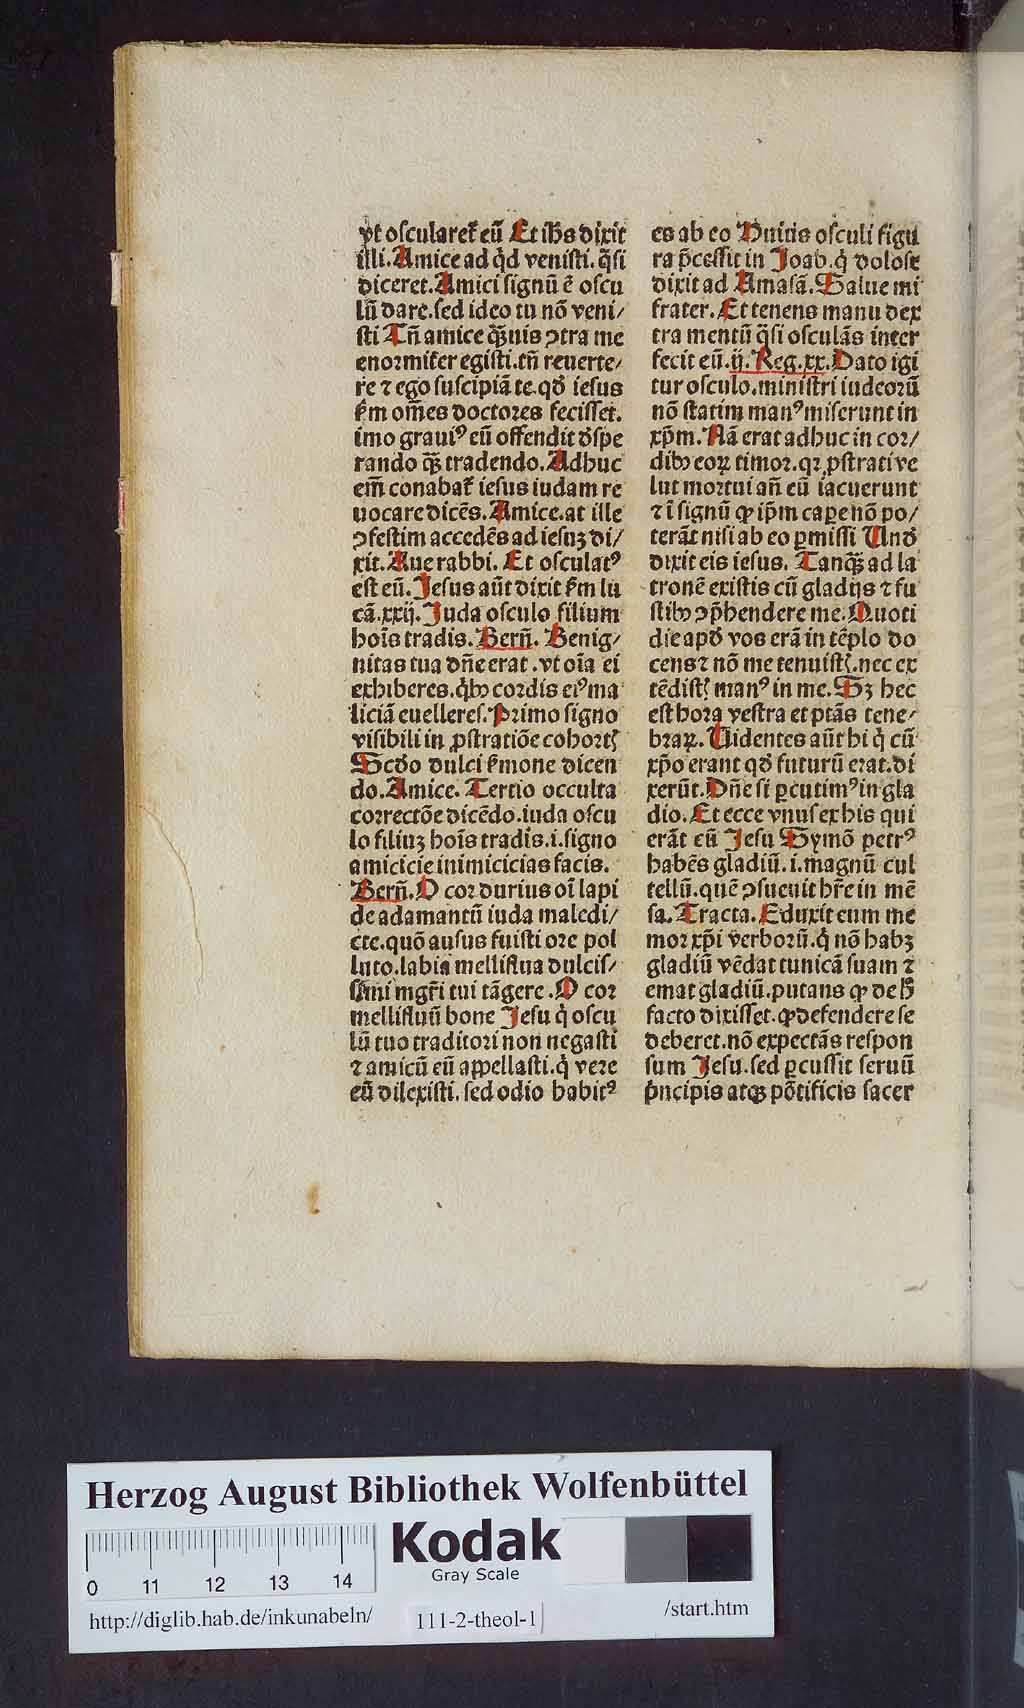 vt osculareť eū Et ihs dixit
illi. Amice ad qd venisti. q̄si
diceret. Amici signū ē oscu
lū dare. sed ideo tu nō veni/
sti Tn̄ amice q̄uis ꝯtra me
enormiter egisti. tn̄ reuerte/
re ⁊ ego suscipiā te. qđ iesus
fm om̄es doctores fecisset.
imo grauiꝰ eū offendit đspe
rando q̄ꝫ tradendo. Adhuc
em̄ conabať iesus iudam re
uocare dicēs. Amice. at ille
ꝯfestim accedēs ad iesuꝫ di/
xit. Aue rabbi. Et osculatꝰ
est eū. Jesus aūt dixit fm lu
cā. xxij. Juda osculo filium
hoīs tradis. Bern̄. Benig/
nitas tua dn̄e erat. vt oīa ei
exhiberes. qͥbꝫ cordis eiꝰ ma
liciā euelleres. Primo signo
visibili in ꝓstratiōe cohortꝭ
Scđo dulci fmone dicen
do. Amice. Tertio occulta
correctōe dicēdo. iuda oscu
lo filiuꝫ hoīs tradis. i. signo
amicicie inimicicias facis.
Bern̄. O cor durius oī lapi
de adamantū iuda maledi/
cte. quō ausus fuisti ore pol
luto. labia melliflua dulcis/
simi mgr̄i tui tāgere. O cor
mellifluū bone Jesu qͥ oscu
lū tuo traditori non negasti
⁊ amicū eū appellasti. qͥ vere
eū dilexisti. sed odio habitꝰ
es ab eo Huius osculi figu
ra p̄cessit in Joab. qͥ dolose
dixit ad Amasā. Salue mi
frater. Et tenens manu dex
tra mentū q̄si osculās inter
fecit eū. ij. Reg. xx. Dato igi
tur osculo. ministri iudeorū
nō statim manꝰ miserunt in
xp̄m. Nā erat adhuc in cor/
dibꝫ eoꝝ timor. qꝛ ꝓstrati ve
lut mortui an̄ eū iacuerunt
⁊ ī signū ꝙ ip̄m capere nō po/
terāt nisi ab eo ꝑmissi Unđ
dixit eis iesus. Tanq̄ꝫ ad la
tronē existis cū gladijs ⁊ fu
stibꝫ ꝯp̄hendere me. Quoti
die apđ vos erā in tēplo do
cens ⁊ nō me tenuistꝭ. nec ex
tēdistꝭ manꝰ in me. Sꝫ hec
est hora vestra et ptās tene/
braꝝ. Uidentes aūt hi qͥ cū
xp̄o erant qđ futurū erat. di
xerūt. Dn̄e si ꝑcutimꝰ in gla
dio. Et ecce vnus ex his qui
erāt cū Jesu Symō petrꝰ
habēs gladiū. i. magnū cul
tellū. quē ꝯsueuit hr̄e in mē
sa. Tracta. Eduxit eum me
mor xp̄i verborū. qͥ nō habꝫ
gladiū vēdat tunicā suam ⁊
emat gladiū. putans ꝙ de h̄
facto dixisset. ꝙ defendere se
deberet. nō expectās respon
sum Jesu. sed ꝑcussit seruū
pͥncipis atqꝫ pōtificis sacer
Herzog August Bibliothek Wolfenbüttel
Kodak
Gray Scale
0 11 12 13 14
http://diglib.hab.de/inkunabeln/ 111-2-theol-1 /start.htm